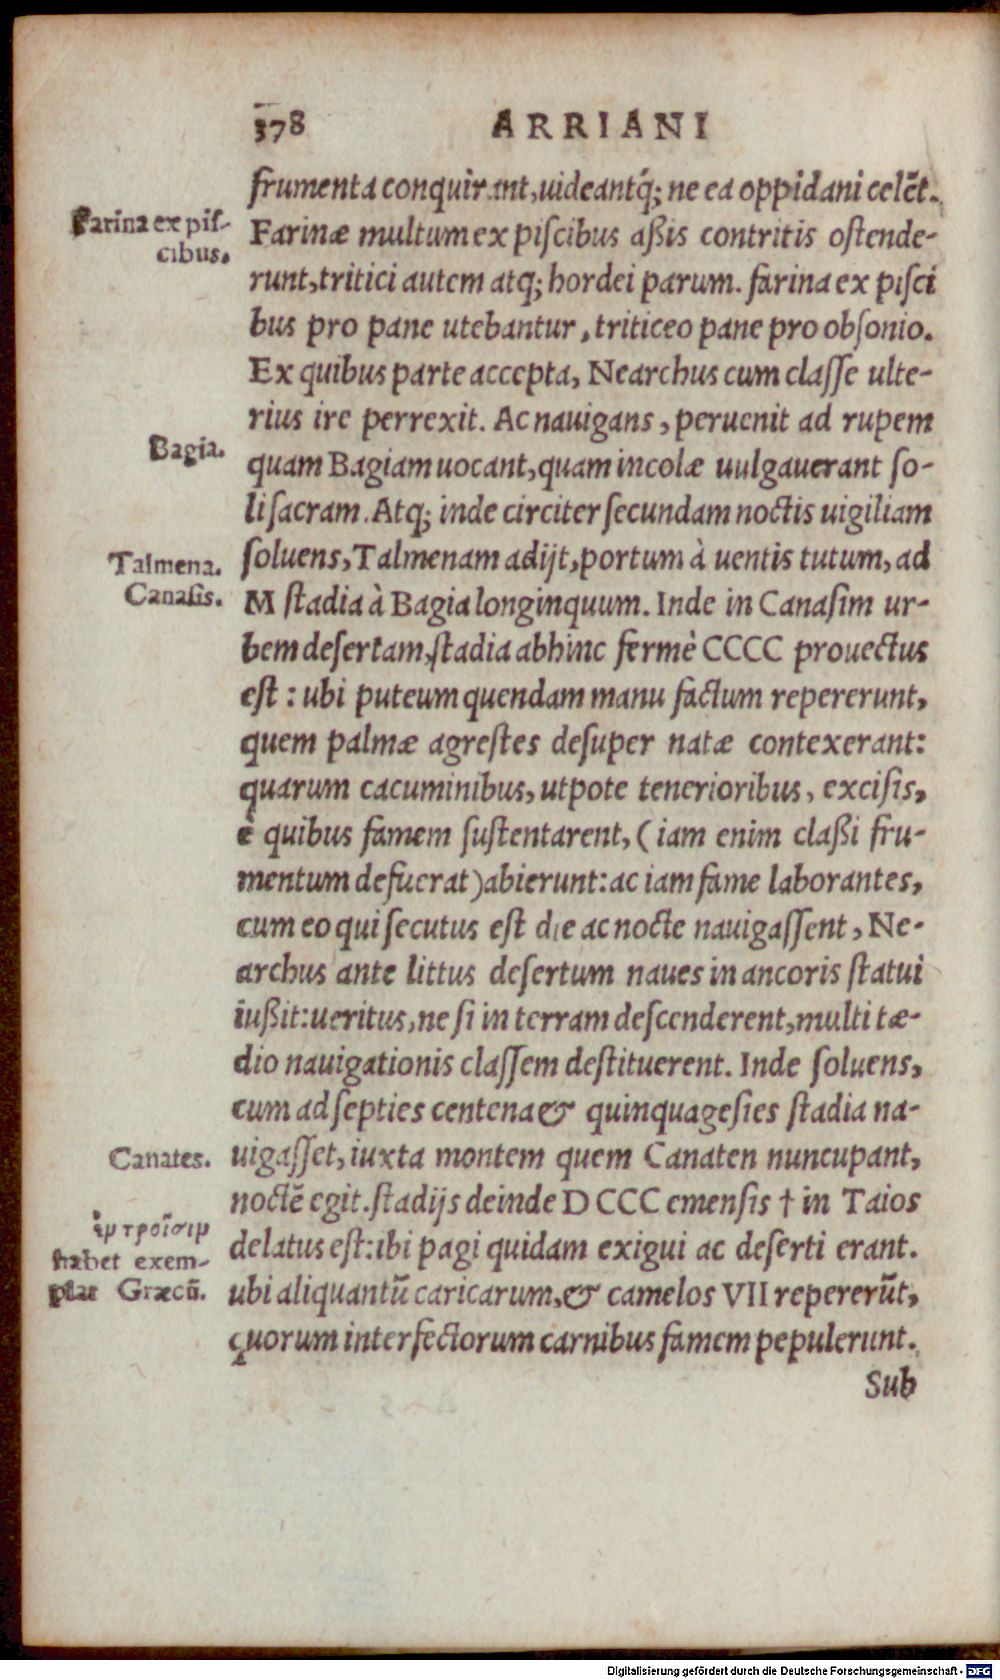 378 ARRIANI
frumenta conquirant, uideantq́; ne ea oppidani celẽt.
Farina ex pis-
cibus.
Farinæ multum ex piscibus aßis contritis ostende-
runt, tritici autem atq; hordei parum. farina ex pisci
bus pro pane utebantur, triticeo pane pro obsonio.
Ex quibus parte accepta, Nearchus cum classe ulte-
rius ire perrexit. Ac nauigans, peruenit ad rupem
Bagia.
quam Bagiam uocant, quam incolæ uulgauerant so-
li sacram. Atq; inde circiter secundam noctis uigiliam
Talmena.
soluens, Talmenam adijt, portum à uentis tutum, ad
Canasis.
M stadia à Bagia longinquum. Inde in Canasim ur-
bem desertam, stadia abhinc fermè CCCC prouectus
est: ubi puteum quendam manu factum repererunt,
quem palmæ agrestes desuper natæ contexerant:
quarum cacuminibus, utpote tenerioribus, excisis,
è quibus famem sustentarent, (iam enim claßi fru-
mentum defuerat) abierunt: ac iam fame laborantes,
cum eo qui secutus est die ac nocte nauigassent, Ne-
archus ante littus desertum naues in ancoris statui
iußit: ueritus, ne si in terram descenderent, multi tæ-
dio nauigationis classem destituerent. Inde soluens,
cum ad septies centena & quinquagesies stadia na-
Canates.
uigasset, iuxta montem quem Canaten nuncupant,
noctẽ egit. stadijs deinde D CCC emensis † in Taios
ἐν τροῖσιν
habet exem-
plar Græcũ.
delatus est: ibi pagi quidam exigui ac deserti erant.
ubi aliquantũ caricarum, & camelos VII repererũt,
quorum interfectorum carnibus famem pepulerunt.
Sub
Digitalisierung gefördert durch die Deutsche Forschungsgemeinschaft - DFG